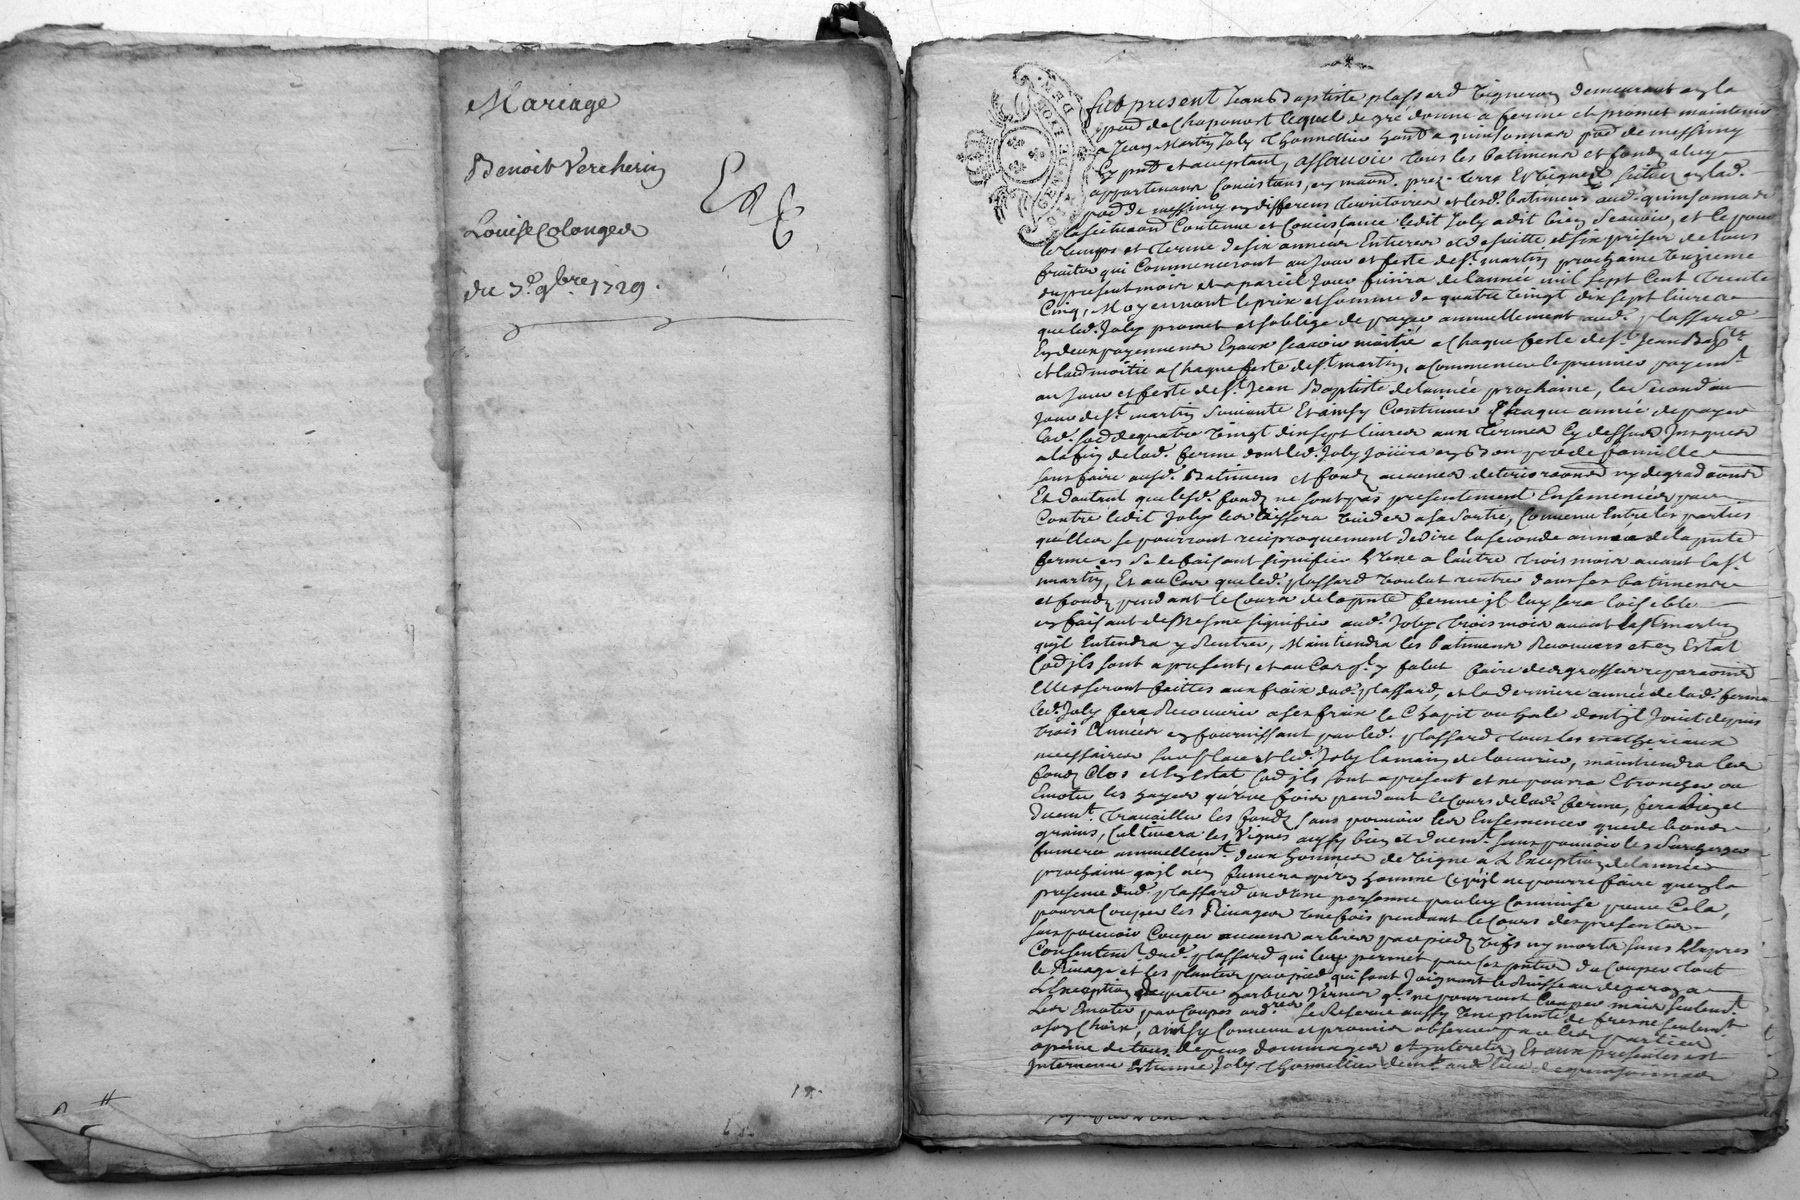 Mariage
Benoit Vercherin
Louise Colonges
du 3e. 9bre. 1729.
Fut present Jean Baptiste plassard vigneron demeurant en la
psse de Chaponost lequel de gré donne a ferme et promet maintenir
a Jean Martin Joly Thonnellier hant a quinsonnas psse de messimy
cy pnt et acceptant, assavoir tous les batimens et fonds a luy
appartenans Consistans, en maison, prez, terre et vignes scituez en lad.
psse de messimy en differens territoires et lesd. batimens aud. quinsonnas
Contenue et Consistance ledit Joly a dit bien scavoir, et ce pour
le temps et terme de six années Entieres et de suitte et six prises de tous
fruits qui Commenceront au jour et feste de st martin prochaine onzieme
du present mois et a pareil jour finira de l'année mil sept cent trente
Cinq, Moyennant le prix et somme de quatre vingt dix sept livres
que led. Joly promet et s'oblige de payer annuellement aud. plassard
En deux payemens Egaux scavoir moitié a Chaque feste de st Jean Bapte
et lad moitié a Chaque feste de st martin, a commencer le premier payemt
au jour et feste de st Jean Baptiste de l'année prochaine, le Second au
jour de st martin Suivante Et ainsy Continuer Chaque année de payer
lad. so᷑e de quatre vingt dix sept livres aux termes cy dessus Jusques
a la fin de lad. ferme dont led. Joly Jouira en Bon pere de famille
sans faire ausd. Batimens et fonds aucunes ny degradaons
Et d'autant que lesd. fonds ne sont pas presentement Ensemencés par
Contre ledit Joly les laissera vuides a sa Sortie, Convenu Entre les parties
qu'elles se pourront reciproquement dedire la seconde année de la pnte
ferme en se le faisant signifier l'une a l'autre trois mois avant la st
martin, Et au Cas que led. plassard voulut rentrer dans ses batimens
et fonds pendant le Cours de la pnte ferme il luy sera loisible
en faisant de Mesme signifier aud. Joly trois mois avant la st martin
qu'il Entendra y Rentrer, Maintiendra les batimens Recouvers et en Estat
Co᷑e ils sont a present, et au Cas ql y falut faire des grosses reparaons
Elles seront faittes aux fraix dud. plassard, et la derniere année de lad. ferme
led. Joly fera Recouvrir a ses fraix le Chapit ou hale dont il Jouit depuis
trois Années en fournissant par led. plassard tous les matheriaux
necessaires sur place et led. Joly la main de l'ouvrier, maintiendra les
fonds Clos et En Estat Co᷑e ils sont a present et ne pourra Etroncher ou
Emoter les hayes qu'une fois pendant le Cours de lad. ferme, fera bien et
duemt. travailler les fonds sans pouvoir les Ensemencer que de bons
grains, Cultivera les Vignes aussy bien et duemt. sans pouvoir les Surcharger
fumera annuellemt. deux hommes de Vigne a L'Exception de l'année
prochaine qu'il n'en fumera qu'un homme Ce qu'il ne pourra faire qu'en la
presence dud. plassard ou d'une personne par luy Commise pour Cela,
pourra Couper les Rivages une fois pendant le Cours des presentes
sans pouvoir Couper aucuns arbres par pied vifs ny morts sans L'Expres
Consentemt. dud. plassard qui luy permet par Ces pntes de Couper tout
le Rivage et les plantes par pied qui sont Joignant le Ruisseau de
L'Exception de quatre Vernes qls ne pourront Couper mais seulemt
Les Emoter par Coupes ordres. se Reserve aussy une plante de fresne seulemt
a son Choix, Ainsy Convenu et promis observer par les parties
a peine de tous depens dommages et interests, Et aux presentes est
Intervenu Estienne Joly Thonnellier demt. aud. lieu de quinsonnas